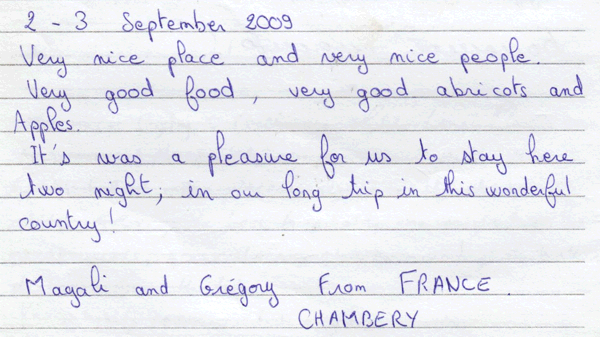 2 - 3 September 2009
Very nice place and very nice people.
Very good food, very good abricots and
Apples.
It's was a pleasure for us to stay here
two night; in our long trip in this wonderful
country!
Magali and Grégory From FRANCE.
CHAMBERY